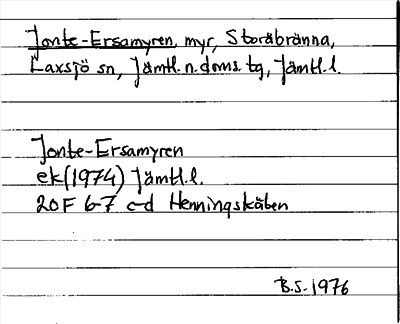 Jonte-Ersamyren, myr, Storåbränna,
Laxsjö sn, Jämtl. n. doms. tg, Jämtl. l.
Jonte-Ersamyren
ek (1974) Jämtl. l.
20F 6-7 c-d Henningskälen
B.S. 1976